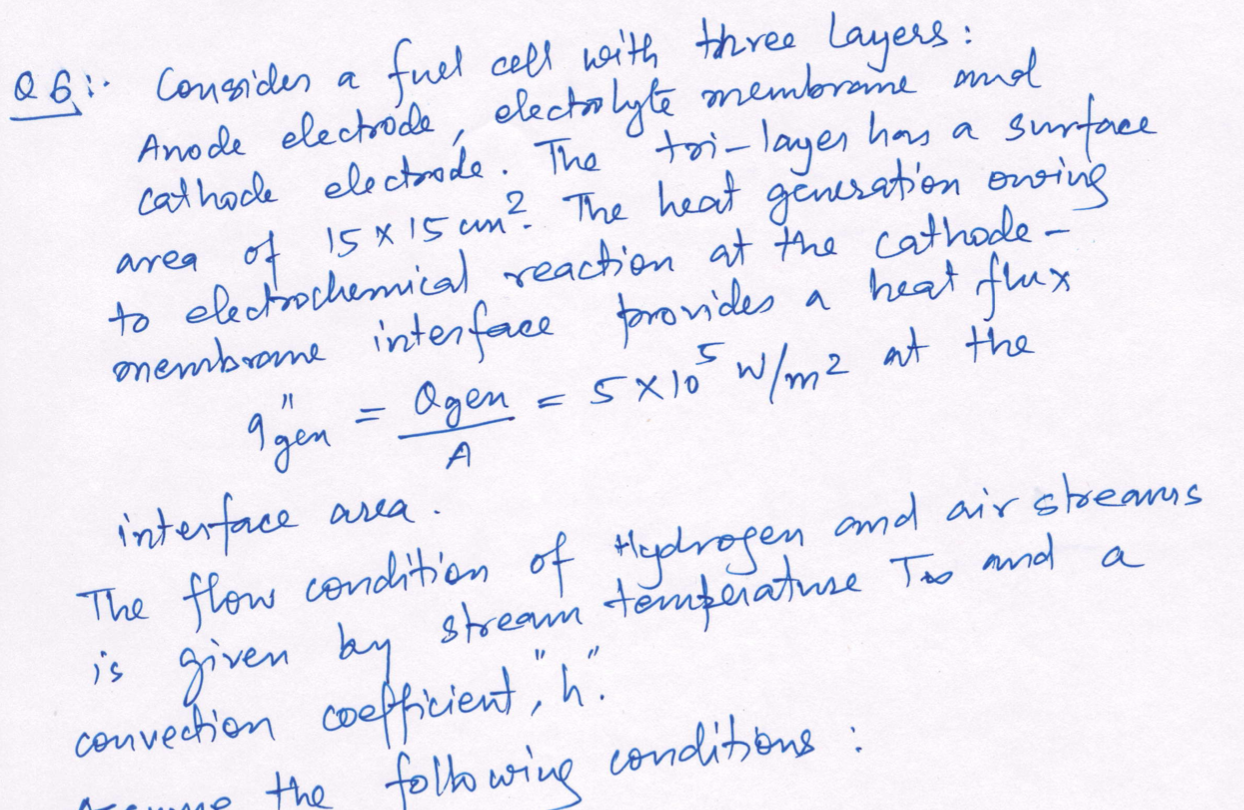 Q6:- Consider a fuel cell with three layers:
Anode electrode, electrolyte membrane and
cathode electrode. The tri-layer has a surface
area of 15 × 15 cm². The heat generation owing
to electrochemical reaction at the cathode-
membrane interface provides a heat flux
q"gen = Qgen / A = 5 × 10⁵ W/m² at the
interface area.
The flow condition of Hydrogen and air streams
is given by stream temperature T∞ and a
convection coefficient, "h".
Assume the following conditions: